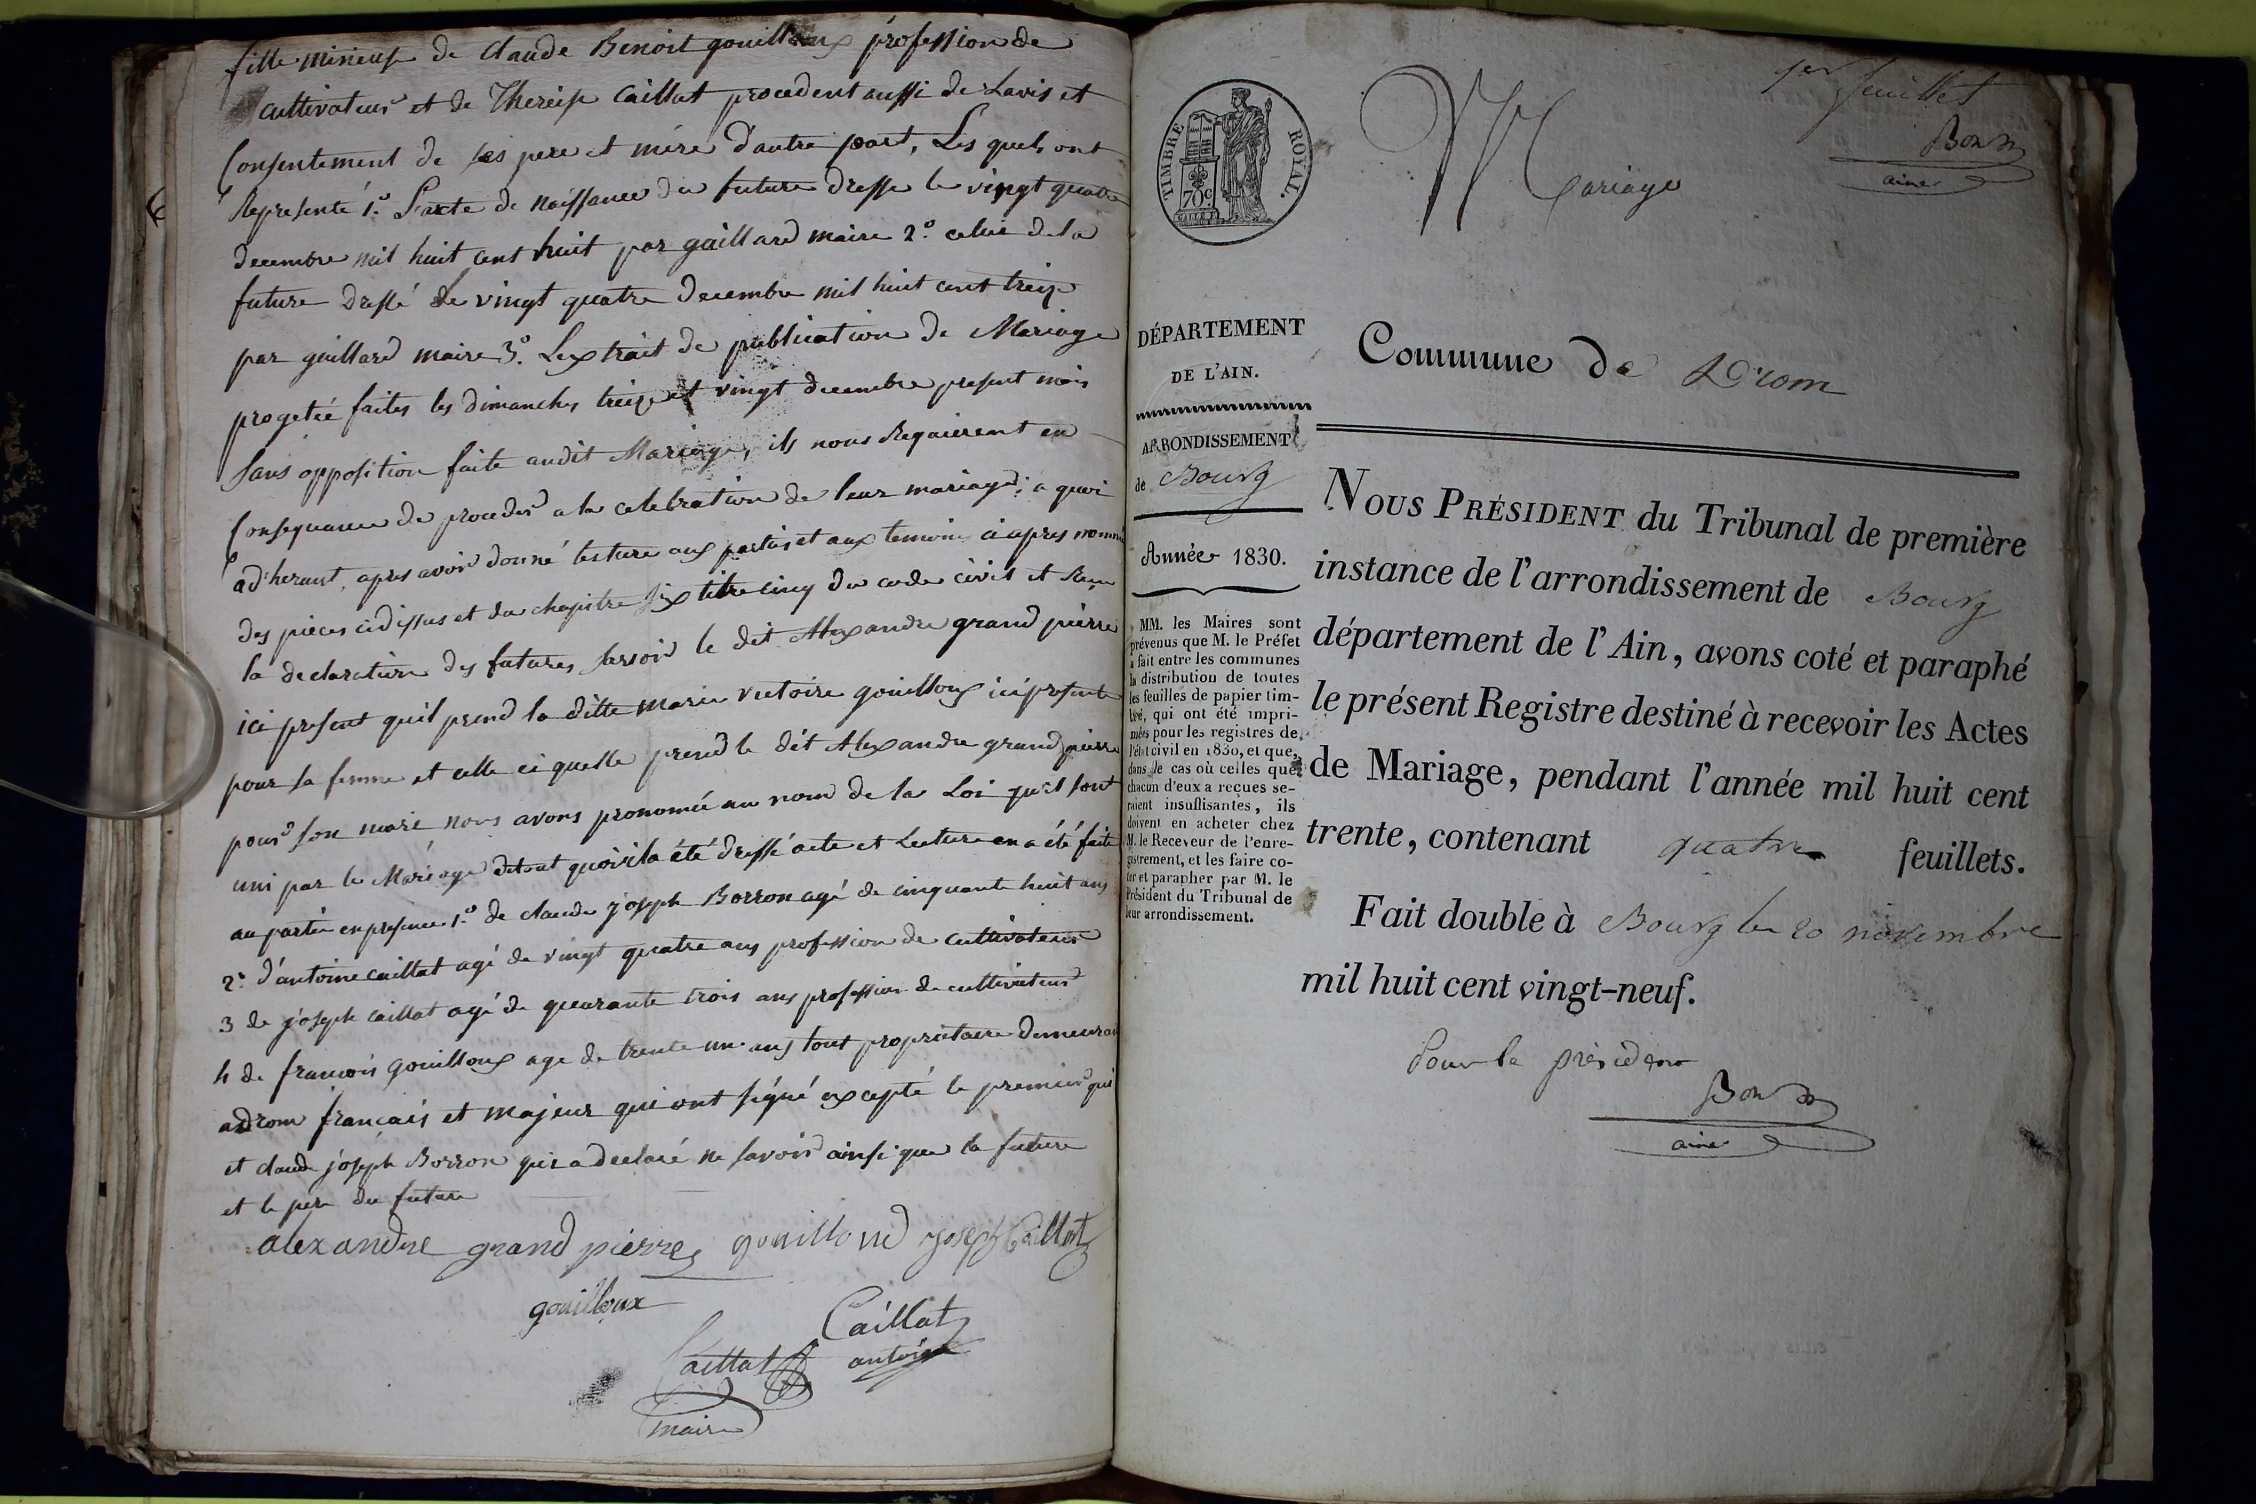 fille mineuse de Claude Benoit gouilloux profession de
cultivateur et de Thereise Caillat procedent aussi de Lavis et
Consentement de ses pere et mére d'autre part, Les quels ont
Representé 1.° L'acte de naissance du future dresse le vingt quatre
decembre mil huit cent huit par guillard maire 2.° celui de la
future dressé le vingt quatre decembre mil huit cent treize
par guillard maire 3.° Lextrait de publication de Mariage
progetée faites les dimanches treize et vingt decembre present mois
sans opposition faite audit Mariage, ils nous Requierent en
Consequance de proceder a la celebration de leur mariage; a quoi
adherant, apres avoir donné lecture aux parties et aux temoins ci apres nommé
des pieces cidissus et du chapitre six titre cinq du code civil et Recu
la declaration des futures savoir le dit Alexandre grand pierre
ici present quil prend la ditte marie victoire gouilloux ici presente
pour sa femme et celle ci quelle prend le dit Alexandre grand pierre
pour son mari nous avons pronomée au nom de la Loi qu'il sont
uni par le Mariage de tout quoi il a été dressé acte et Lecture en a été faite
au partie en presence 1.° de claude joseph Borron agé de cinquante huit ans
2.° d'antoine caillat agé de vingt quatre ans profession de cultivateur
3 de joseph caillat agé de quarante trois ans profession de cultivateur
4 de francois gouilloux age de trente un ans tout propriétaire demeurant
adrom français et majeur qui ont signé excepté le premier qui
et claude joseph Borron qui a declaré ne savoir ainsi que la future
et le pere du future
alexandre grand pierre gouilloud joseph Caillat
gouilloux
Caillat
antoine
Caillat
maire
1er feuillet
Bon
ainé
TIMBRE ROYAL.
70c
Mariage
DÉPARTEMENT
DE L'AIN.
Commune de Drom
ARRONDISSEMENT
de Bourg
Année 1830.
MM. les Maires sont
prévenus que M. le Préfet
a fait entre les communes
la distribution de toutes
les feuilles de papier tim-
bré, qui ont été impri-
mées pour les registres de
l'état civil en 1830, et que,
dans le cas où celles que
chacun d'eux a reçues se-
raient insuffisantes, ils
doivent en acheter chez
M. le Receveur de l'enre-
gistrement, et les faire co-
ter et parapher par M. le
Président du Tribunal de
leur arrondissement.
NOUS PRÉSIDENT du Tribunal de première
instance de l'arrondissement de Bourg
département de l'Ain, avons coté et paraphé
le présent Registre destiné à recevoir les Actes
de Mariage, pendant l'année mil huit cent
trente, contenant quatre feuillets.
Fait double à Bourg le 20 novembre
mil huit cent vingt-neuf.
Pour le président
Bon
ainé